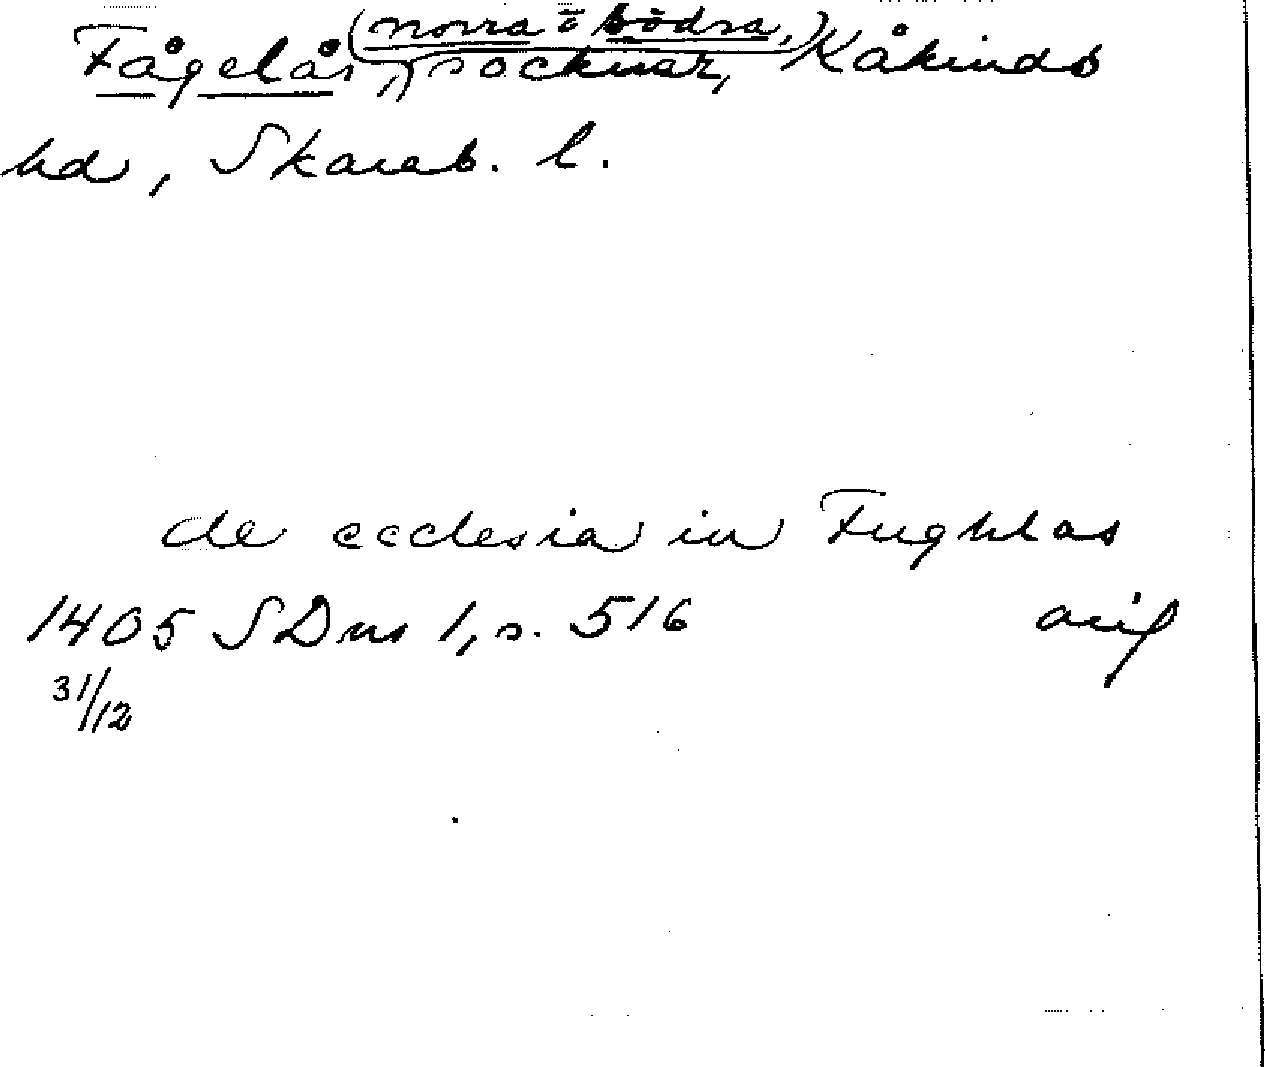 (norra o södra,)
Fågelås, socknar, Kåkinds
hd, Skarab. l.
de ecclesia in Fughlas
1405 SDns 1, s. 516
31/12